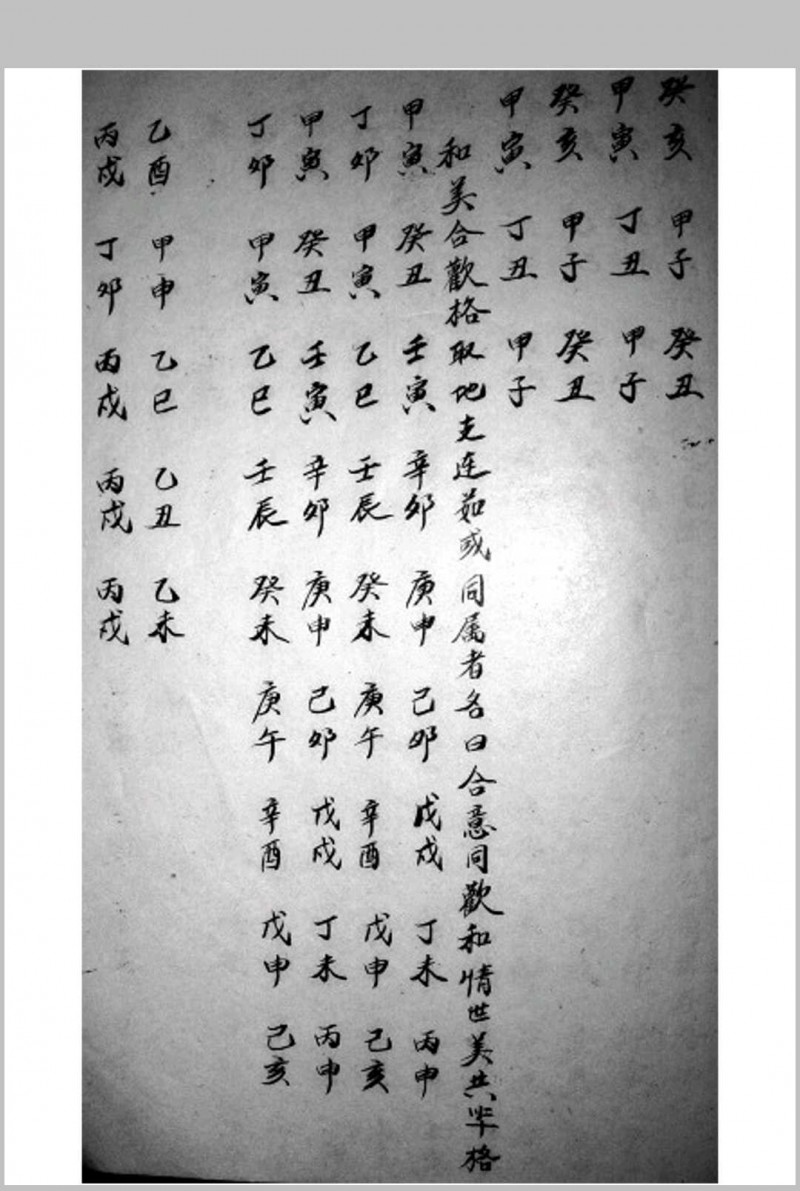 癸亥 甲子 癸丑
甲寅 丁丑 甲子
癸亥 甲子 癸丑
甲寅 丁丑 甲子
和美合歡格取地支连茹或同属者名曰合意同歡和情世美共牢格
甲寅 癸丑 壬寅 辛卯 庚申 己卯 戊戍 丁未 丙申
丁卯 甲寅 乙巳 壬辰 癸未 庚午 辛酉 戊申 己亥
甲寅 癸丑 壬寅 辛卯 庚申 己卯 戊戍 丁未 丙申
丁卯 甲寅 乙巳 壬辰 癸未 庚午 辛酉 戊申 己亥
乙酉 甲申 乙巳 乙丑 乙未
丙戍 丁卯 丙戍 丙戍 丙戍